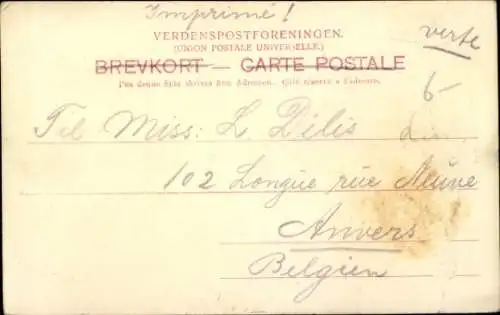 Imprimé!
VERDENSPOSTFORENINGEN.
(UNION POSTALE UNIVERSELLE.)
verte
BREVKORT — CARTE POSTALE
Paa denne Side skrives kun Adressen. Côté réservé à l'adresse.
6-
Til Miss: L. Dilis
102 Longue rue Neuve
Anvers
Belgien